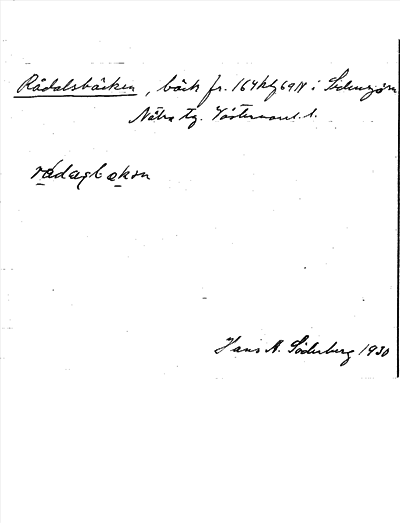 Rådalsbäcken, bäck fr. 164 hfg 69 N i Sidensjön
Nätra tg. Västernorrl. l.
Hans A. Söderberg 1930